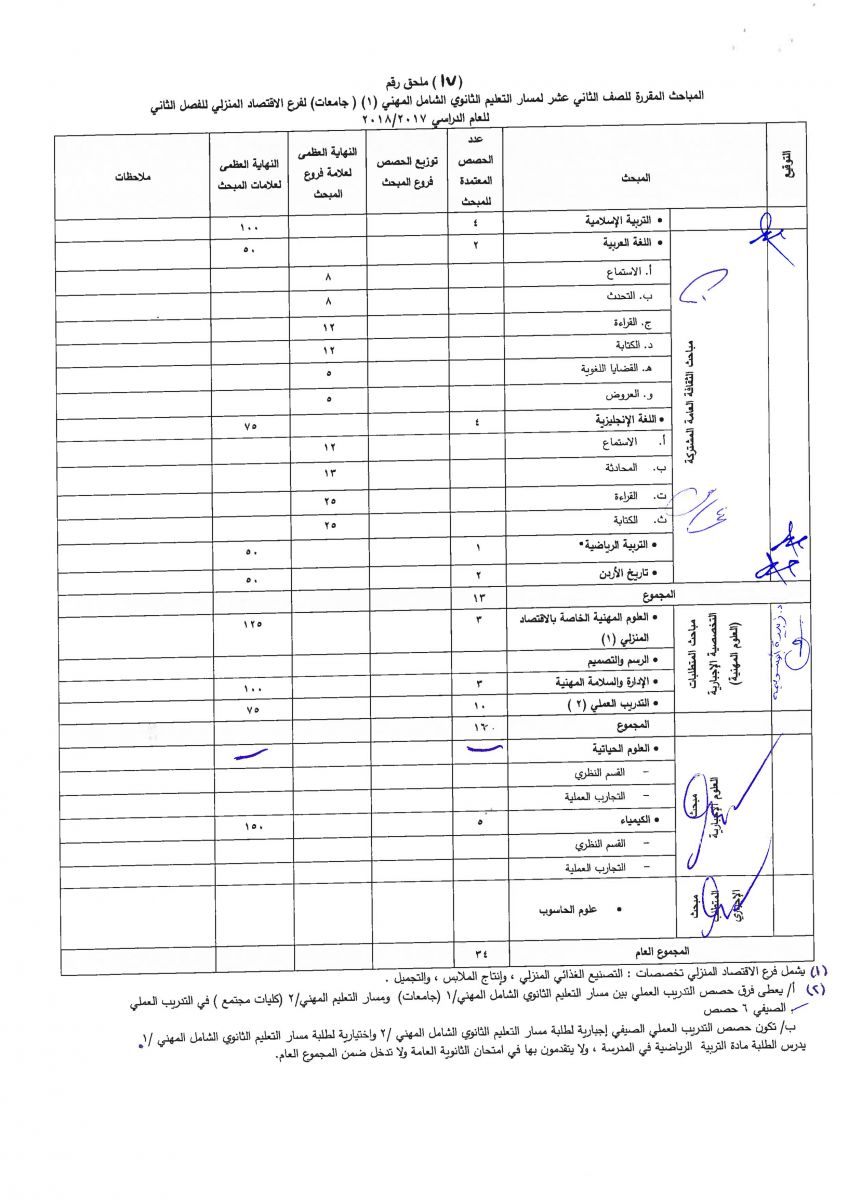 ( ١٧ ) ملحق رقم
المباحث المقررة للصف الثاني عشر لمسار التعليم الثانوي الشامل المهني (١) ( جامعات) لفرع الاقتصاد المنزلي للفصل الثاني
للعام الدراسي ٢٠١٨/٢٠١٧
التوقيع المبحث عدد الحصص المعتمدة للمبحث توزيع الحصص فروع المبحث النهاية العظمى لعلامة فروع المبحث النهاية العظمى لعلامات المبحث ملاحظات
مباحث الثقافة العامة المشتركة
• التربية الإسلامية ٤ ١٠٠
• اللغة العربية ٢ ٥٠
أ. الاستماع ٨
ب. التحدث ٨
ج. القراءة ١٢
د. الكتابة ١٢
هـ. القضايا اللغوية ٥
و. العروض ٥
• اللغة الإنجليزية ٤ ٧٥
أ. الاستماع ١٢
ب. المحادثة ١٣
ت. القراءة ٢٥
ث. الكتابة ٢٥
• التربية الرياضية* ١ ٥٠
• تاريخ الأردن ٢ ٥٠
المجموع ١٣
مباحث المتطلبات التخصصية الإجبارية (العلوم المهنية)
• العلوم المهنية الخاصة بالاقتصاد ٣ ١٢٥
المنزلي (١)
• الرسم والتصميم
• الإدارة والسلامة المهنية ٣ ١٠٠
• التدريب العملي (٢ ) ١٠ ٧٥
المجموع ١٦
مبحث العلوم الإجبارية
• العلوم الحياتية
– القسم النظري
– التجارب العملية
• الكيمياء ٥ ١٥٠
– القسم النظري
– التجارب العملية
مبحث المتطلب الإجباري
• علوم الحاسوب
المجموع العام ٣٤
(١) يشمل فرع الاقتصاد المنزلي تخصصات : التصنيع الغذائي المنزلي ، وإنتاج الملابس ، والتجميل .
(٢) أ/ يعطى فرق حصص التدريب العملي بين مسار التعليم الثانوي الشامل المهني/١ (جامعات) ومسار التعليم المهني/٢ (كليات مجتمع ) في التدريب العملي
الصيفي ٦ حصص
ب/ تكون حصص التدريب العملي الصيفي إجبارية لطلبة مسار التعليم الثانوي الشامل المهني /٢ واختيارية لطلبة مسار التعليم الثانوي الشامل المهني /١
يدرس الطلبة مادة التربية الرياضية في المدرسة ، ولا يتقدمون بها في امتحان الثانوية العامة ولا تدخل ضمن المجموع العام.